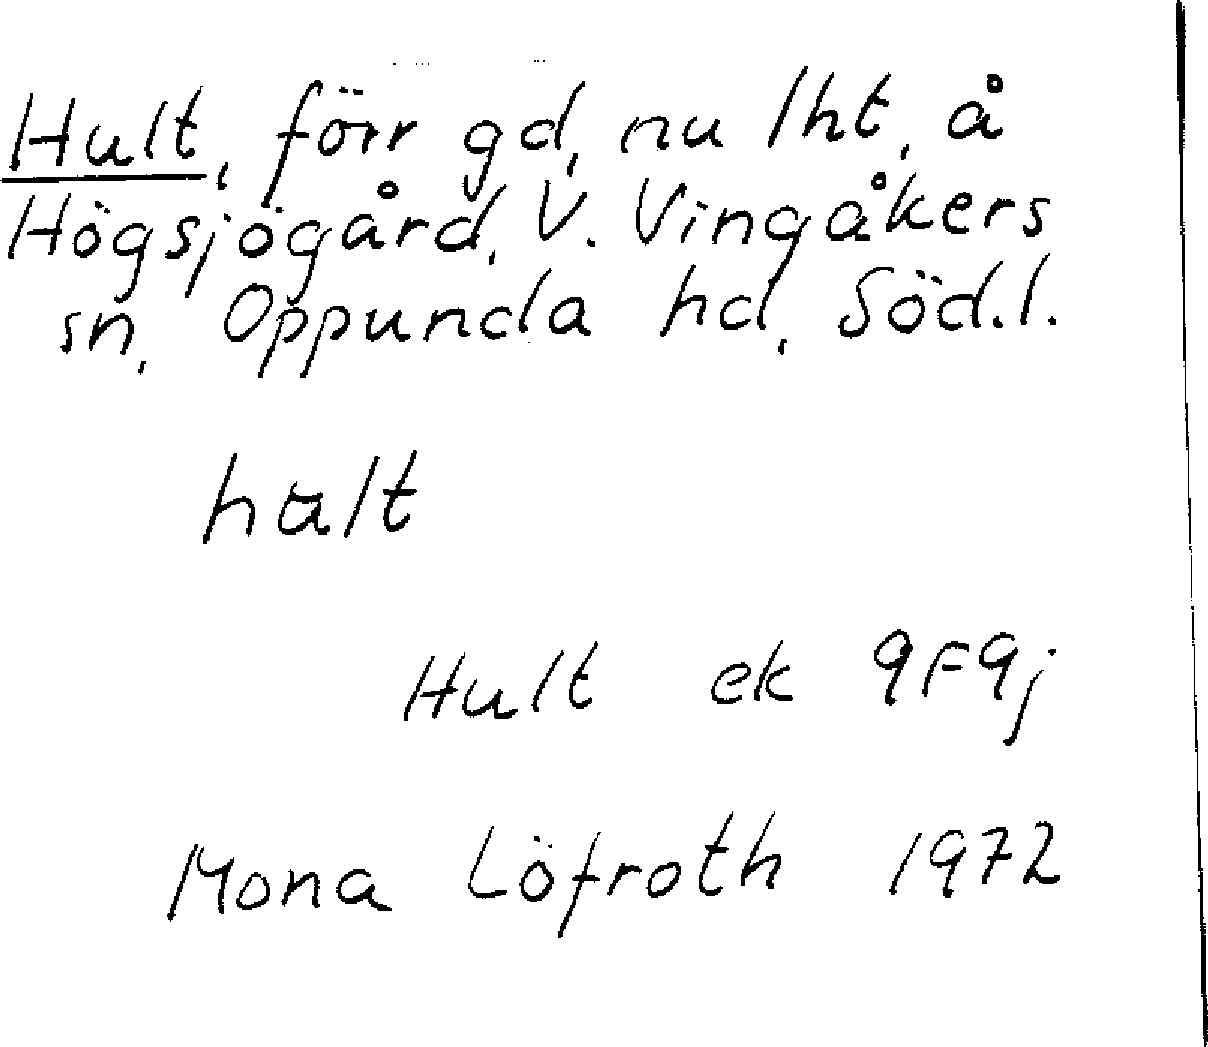 Hult, förr gd, nu lht, å
Högsjögård, V. Vingåkers
sn, Oppunda hd, Söd.l.
hult
Hult ek 9F9j
Mona Löfroth 1972